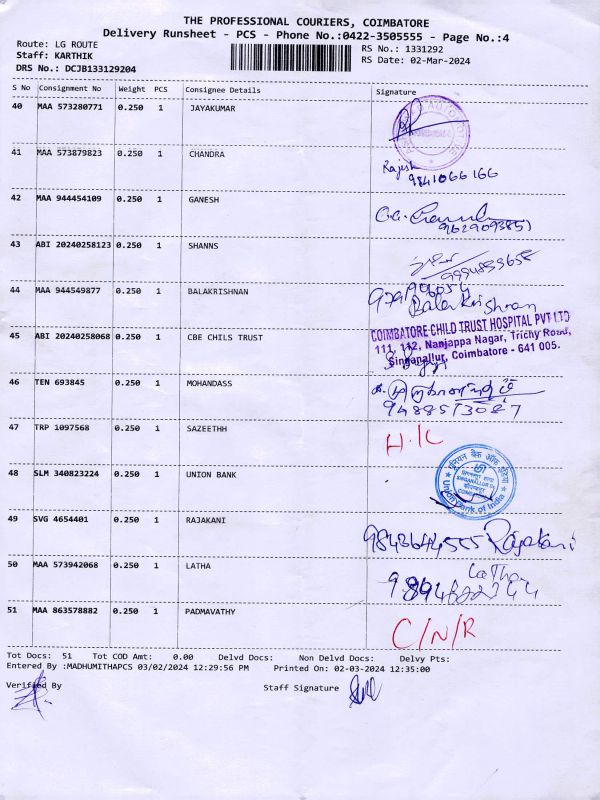 THE PROFESSIONAL COURIERS, COIMBATORE
Delivery Runsheet - PCS - Phone No.:0422-3505555 - Page No.:4
Route: LG ROUTE RS No.: 1331292
Staff: KARTHIK RS Date: 02-Mar-2024
DRS No.: DCJB133129204
S No Consignment No Weight PCS Consignee Details Signature
40 MAA 573280771 0.250 1 JAYAKUMAR
41 MAA 573879823 0.250 1 CHANDRA
Rajesh
9841066166
42 MAA 944454109 0.250 1 GANESH
9629093851
43 ABI 20240258123 0.250 1 SHANNS
9994899658
44 MAA 944549877 0.250 1 BALAKRISHNAN
Balakrishnan
45 ABI 20240258068 0.250 1 CBE CHILS TRUST
COIMBATORE CHILD TRUST HOSPITAL PVT LTD
111, 112, Nanjappa Nagar, Trichy Road,
Singanallur, Coimbatore - 641 005.
46 TEN 693845 0.250 1 MOHANDASS
9488513087
47 TRP 1097568 0.250 1 SAZEETHH
H.IC
48 SLM 340823224 0.250 1 UNION BANK
यूनियन बैंक ऑफ इंडिया
Union Bank of India
49 SVG 4654401 0.250 1 RAJAKANI
9843644555 Rajakani
50 MAA 573942068 0.250 1 LATHA
Latha
9894622344
51 MAA 863578882 0.250 1 PADMAVATHY
C/N/R
Tot Docs: 51 Tot COD Amt: 0.00 Delvd Docs: Non Delvd Docs: Delvy Pts:
Entered By :MADHUMITHAPCS 03/02/2024 12:29:56 PM Printed On: 02-03-2024 12:35:00
Verified By Staff Signature